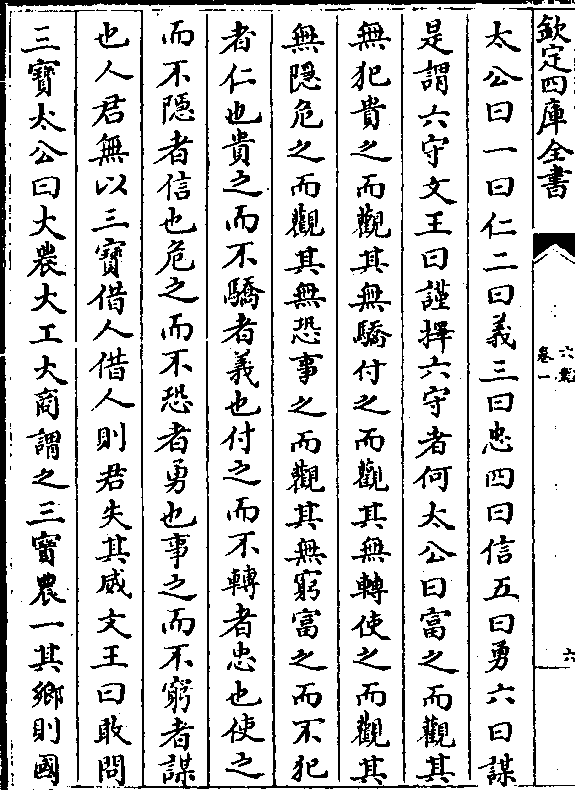 欽定四庫全書
六韜
卷一
六
太公曰一曰仁二曰義三曰忠四曰信五曰勇六曰謀
是謂六守文王曰謹擇六守者何太公曰富之而觀其
無犯貴之而觀其無驕付之而觀其無轉使之而觀其
無隱危之而觀其無恐事之而觀其無窮富之而不犯
者仁也貴之而不驕者義也付之而不轉者忠也使之
而不隱者信也危之而不恐者勇也事之而不窮者謀
也人君無以三寶借人借人則君失其威文王曰敢問
三寶太公曰大農大工大商謂之三寶農一其鄉則國